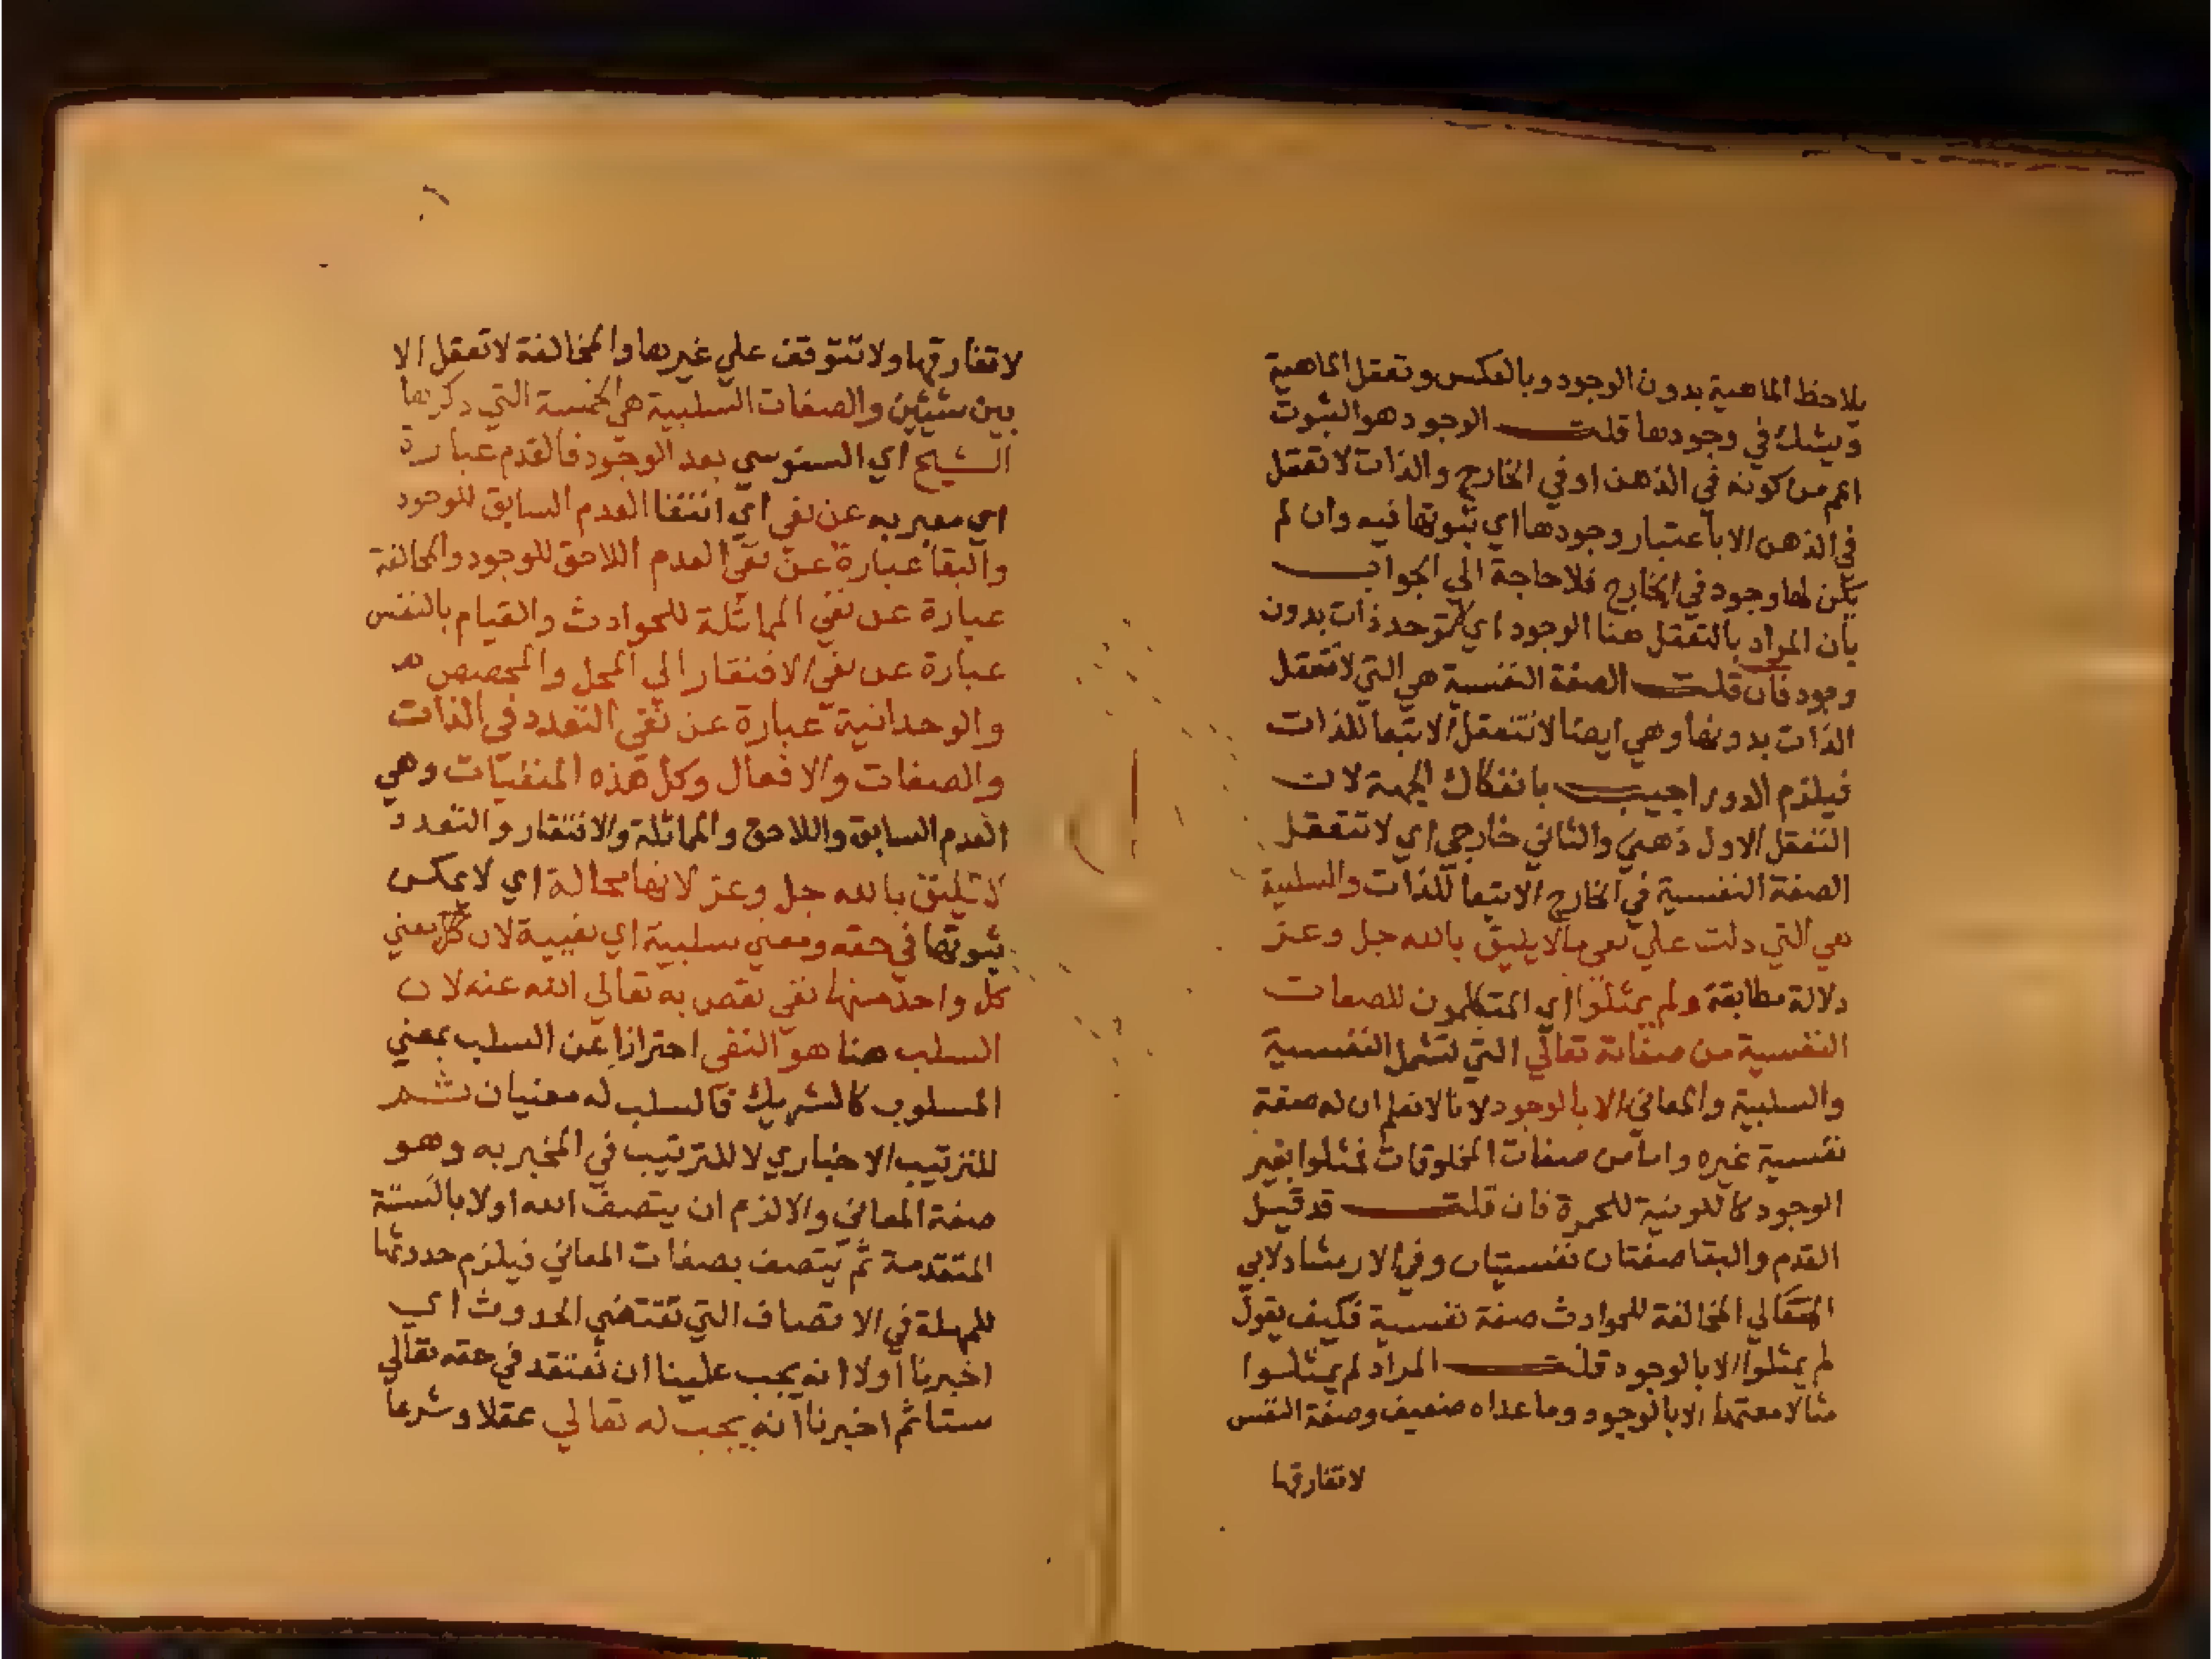 يلاحظ الماهية بدون الوجود وبالعكس وتعقل الماهية
ويشك في وجودها قلت الوجود هو الثبوت
اعم من كونه في الذهن او في الخارج والذات لا تعقل
في الذهن الا باعتبار وجودها اي ثبوتها فيه وان لم
يكن لها وجود في الخارج فلا حاجة الي الجواب
بان المراد بالتعقل هنا الوجود اي لا توجد ذات بدون
وجود فان قلت الصفة النفسية هي التي لا تتعقل
الذات بدونها وهي ايضا لا تتعقل الا تبعا للذات
فيلزم الدور اجيب بانفكاك الجهة لان
التعقل الاول ذهني والثاني خارجي اي لا تتعقل
الصفة النفسية في الخارج الا تبعا للذات والسلبية
هي التي دلت علي نفي ما لا يليق بالله جل وعز
دلالة مطابقة ولم يمثلوا اي المتكلمون للصفات
النفسية من صفاته تعالي التي تشمل النفسية
والسلبية والمعاني الا بالوجود لانا لا نعلم ان له صفة
نفسية غيره واما من صفات المخلوقات فمثلوا بغير
الوجود كاللونية للحمرة فان قلت قد قيل
القدم والبقا صفتان نفسيتان وفي الارشاد لابي
المعالي المخالفة للحوادث صفة نفسية فكيف يقول
لم يمثلوا الا بالوجود قلت المراد لم يمثلوا
مثالا معتمدا الا بالوجود وما عداه ضعيف وصفة النفس
لا تفارقها
لا تفارقها ولا تتوقف علي غيرها والمخالفة لا تعقل الا
بين شيئين والصفات السلبية هي الخمسة التي ذكرها
الشيخ اي السنوسي بعد الوجود فالقدم عبارة
اي معبر به عن نفي اي انتفا العدم السابق للوجود
والبقا عبارة عن نفي العدم اللاحق للوجود والمخالفة
عبارة عن نفي المماثلة للحوادث والقيام بالنفس
عبارة عن نفي الافتقار الي المحل والمخصص
والوحدانية عبارة عن نفي التعدد في الذات
والصفات والافعال وكل هذه المنفيات وهي
العدم السابق واللاحق والمماثلة والافتقار والتعدد
لا تليق بالله جل وعز لانها محالة اي لا يمكن
ثبوتها في حقه ومعني سلبية اي نفيية لان كل يعني
كل واحدة منها نفي نقص به تعالي الله عنه لان
السلب هنا هو النفي احترازا عن السلب بمعني
المسلوب كالشريك فالسلب له معنيان ثم
للترتيب الاخباري لا للترتيب في المخبر به وهو
صفة المعاني والا لزم ان يتصف الله اولا بالستة
المتقدمة ثم يتصف بصفات المعاني فيلزم حدوثها
للمهلة في الاتصاف التي تقتضي الحدوث اي
اخبرنا اولا انه يجب علينا ان نعتقد في حقه تعالي
ستا ثم اخبرنا انه يجب له تعالي عقلا وشرعا